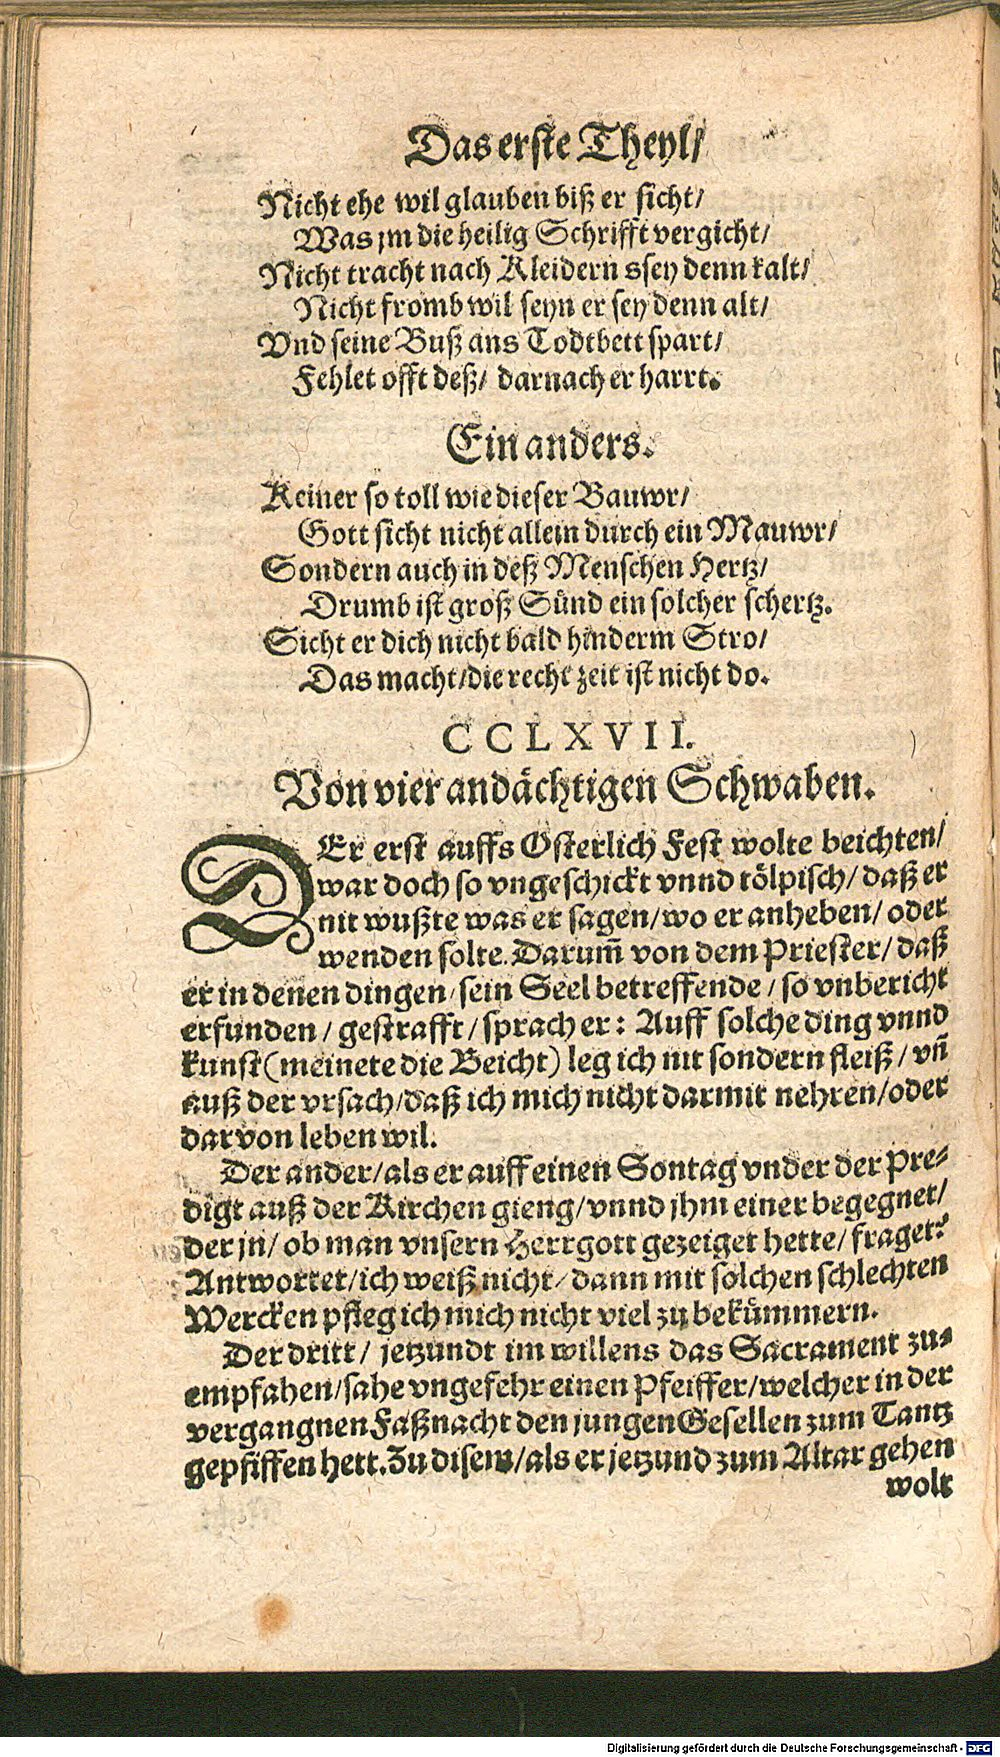 Das erste Theyl/
Nicht ehe wil glauben biß er sicht/
Was jm die heilig Schrifft vergicht/
Nicht tracht nach Kleidern ssey denn kalt/
Nicht fromb wil seyn er sey denn alt/
Vnd seine Buß ans Todtbett spart/
Fehlet offt deß/ darnach er harrt.
Ein anders.
Keiner so toll wie dieser Bauwr/
Gott sicht nicht allein durch ein Mauwr/
Sondern auch in deß Menschen Hertz/
Drumb ist groß Sünd ein solcher schertz.
Sicht er dich nicht bald hinderm Stro/
Das macht/die recht zeit ist nicht do.
CCLXVII.
Von vier andächtigen Schwaben.
DEr erst auffs Osterlich Fest wolte beichten/
war doch so vngeschickt vnnd tölpisch/ daß er
nit wußte was er sagen/wo er anheben/ oder
wenden solte. Darum̃ von dem Priester/ daß
er in denen dingen/sein Seel betreffende/ so vnbericht
erfunden/ gestrafft/ sprach er: Auff solche ding vnnd
kunst (meinete die Beicht) leg ich nit sondern fleiß/ vñ
auß der vrsach/daß ich mich nicht darmit nehren/oder
darvon leben wil.
Der ander/als er auff einen Sontag vnder der Pre-
digt auß der Kirchen gieng/vnnd jhm einer begegnet/
der jn/ ob man vnsern Herrgott gezeiget hette/ fraget:
Antwortet/ich weiß nicht/ dann mit solchen schlechten
Wercken pfleg ich mich nicht viel zu bekümmern.
Der dritt/ jetzundt im willens das Sacrament zu-
empfahen/sahe vngefehr einen Pfeiffer/welcher in der
vergangnen Faßnacht den jungen Gesellen zum Tantz
gepfiffen hett. Zu disem/als er jetzund zum Altar gehen
wolt
Digitalisierung gefördert durch die Deutsche Forschungsgemeinschaft - DFG